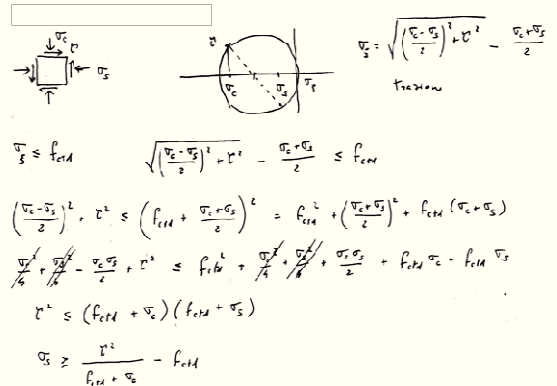 σc
τ
σs
τ
σc
σs
σξ
σξ = √((σc - σs)/2)² + τ² - (σc + σs)/2
trazione
σξ ≤ fctd
√((σc - σs)/2)² + τ² - (σc + σs)/2 ≤ fctd
((σc - σs)/2)² + τ² ≤ (fctd + (σc + σs)/2)² = fctd² + ((σc + σs)/2)² + fctd (σc + σs)
σc²/4 + σs²/4 - σcσs/2 + τ² ≤ fctd² + σc²/4 + σs²/4 + σcσs/2 + fctd σc - fctd σs
τ² ≤ (fctd + σc)(fctd + σs)
σs ≥ τ²/(fctd + σc) - fctd